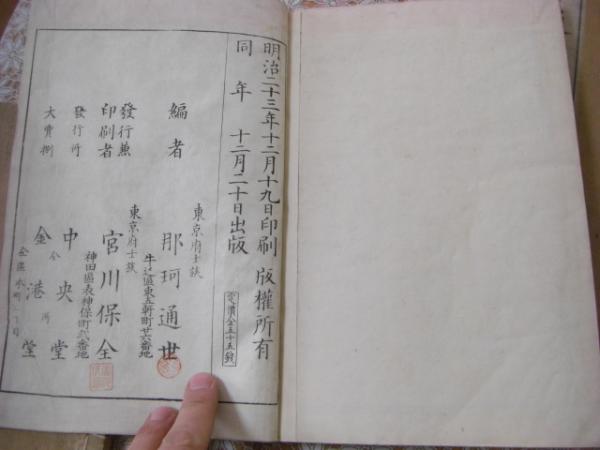 明治二十三年十二月十九日印刷 版權所有
同年 十二月二十日出版
定價金五十五錢
編者 東京府士族 那珂通世
牛込區東五軒町廿六番地
發行兼印刷者 東京府士族 宮川保全
神田區表神保町弍番地
發行所 中央堂
大賣捌 金港堂